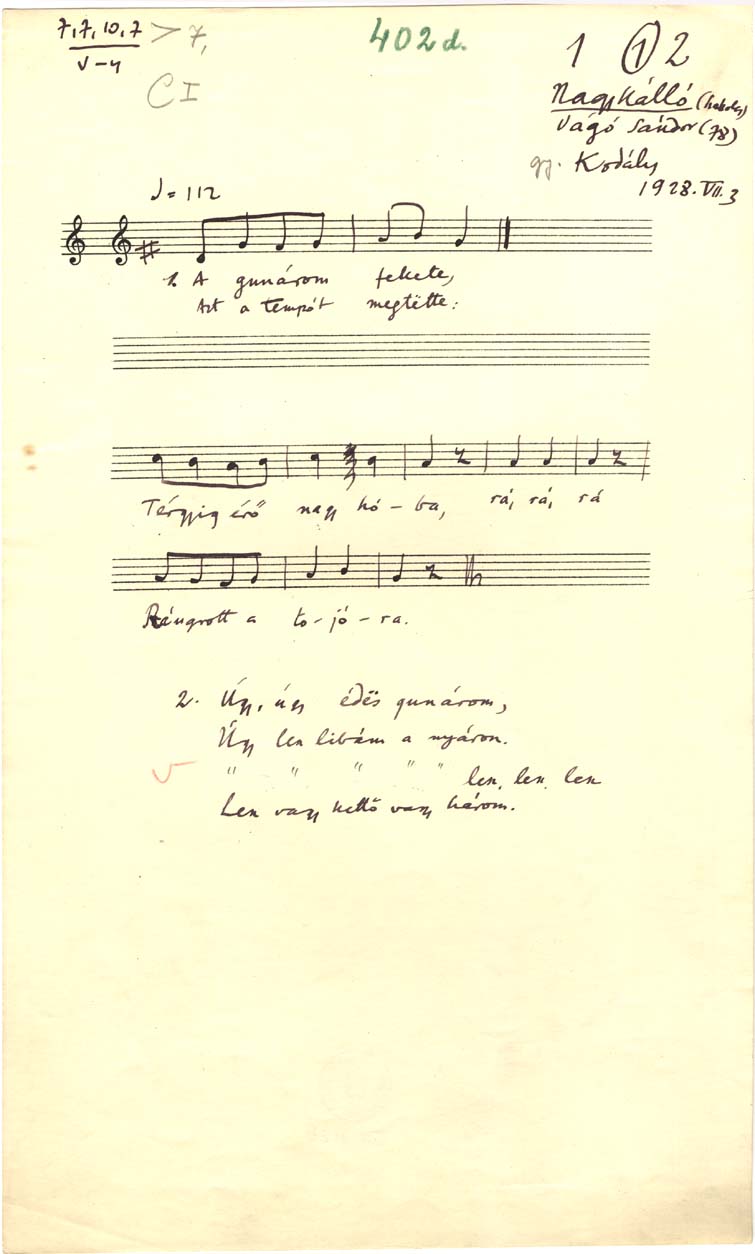 7,7,10,7 > 7,
V–4
CI
402d.
1 ① 2
Nagykálló (Szabolcs)
Vágó Sándor (78)
gy. Kodály
1928. VII. 3
♩= 112
1. A gunárom fekete,
Azt a tempót megtëtte:
Térgyig érő nagy hó – ba, rá, rá, rá
Ráugrott a to – jó – ra.
2. Úgy, úgy édës gunárom,
Úgy len libám a nyáron.
" " " " " len, len, len
Len vagy kettő vagy három.